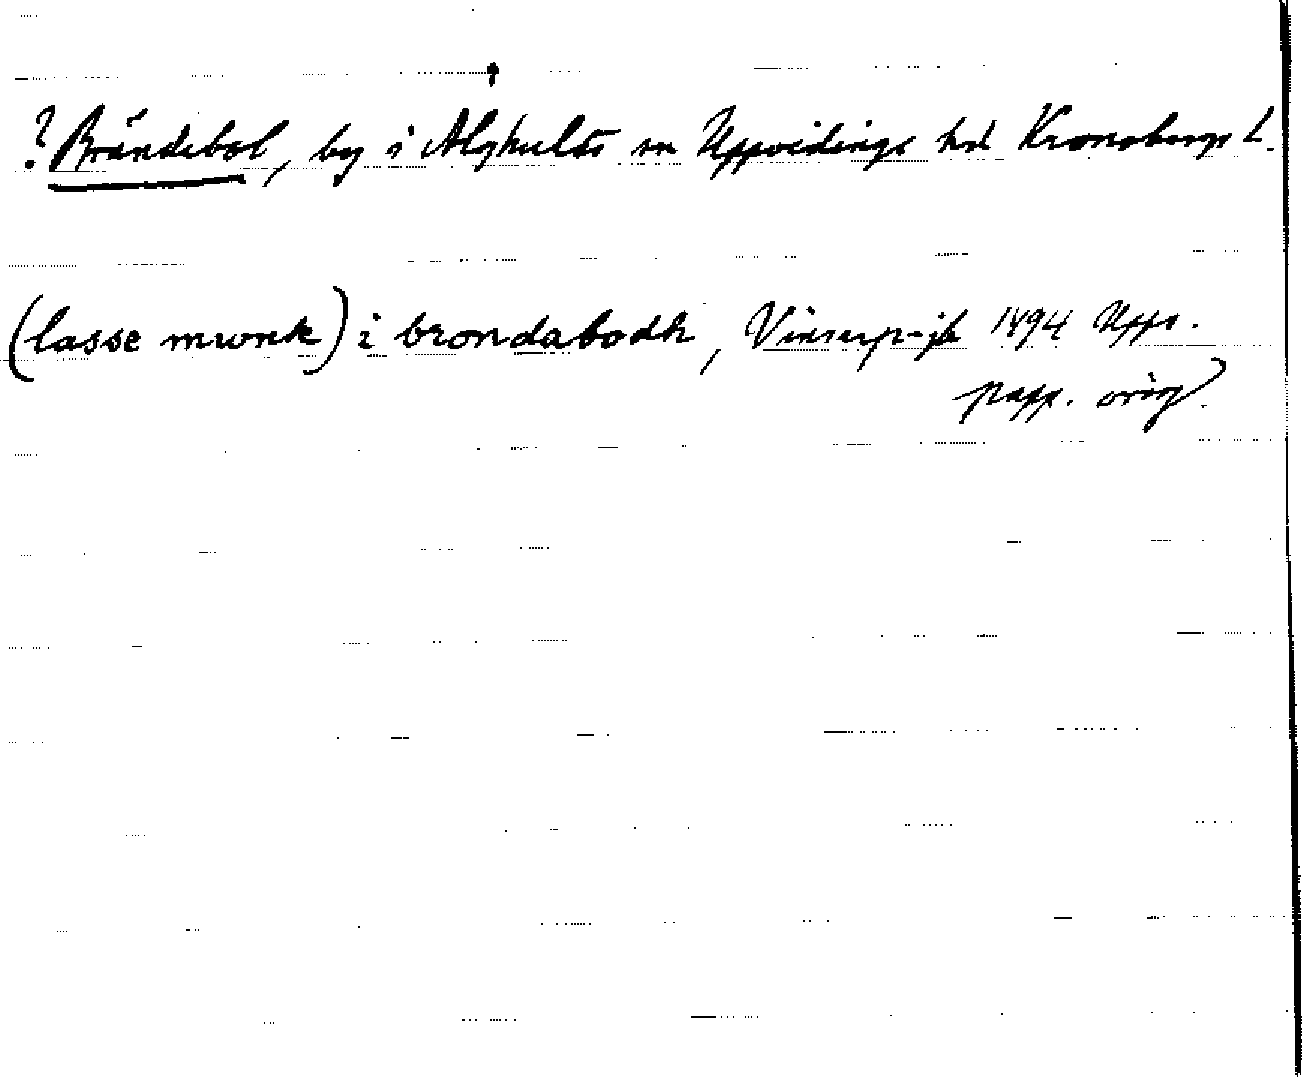 ? Brändebol, by i Älghults sn Uppvidinge hd Kronobergs L.
(lasse mwnk) i brondabodh, Vinserp-jb 1494 Upps.
papp. orig.